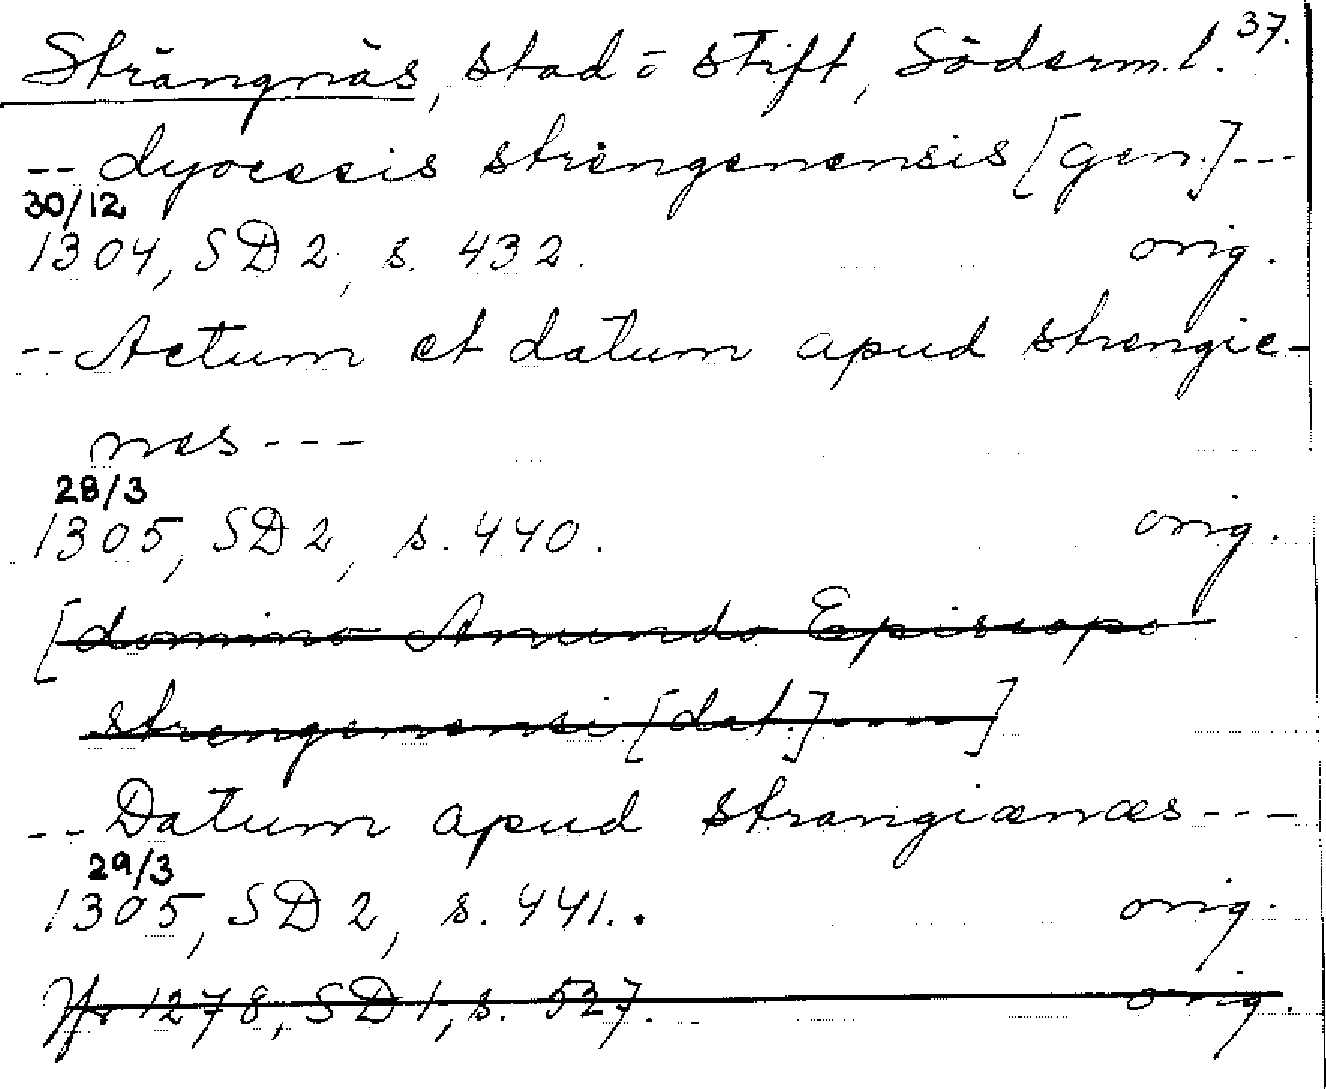 Strängnäs, stad o stift, Söderm.l. 37.
-- dyocesis strengenensis [gen.] ---
30/12
1304, SD 2, s. 432. orig.
-- Actum et datum apud strengie-
nes ---
28/3
1305, SD 2, s. 440. orig.
[domino Anundo Episcopo
strengenensi [dat.] ----]
-- Datum apud strangiænæs ---
29/3
1305, SD 2, s. 441. orig.
Jfr 1278, SD 1, s. 527. orig.